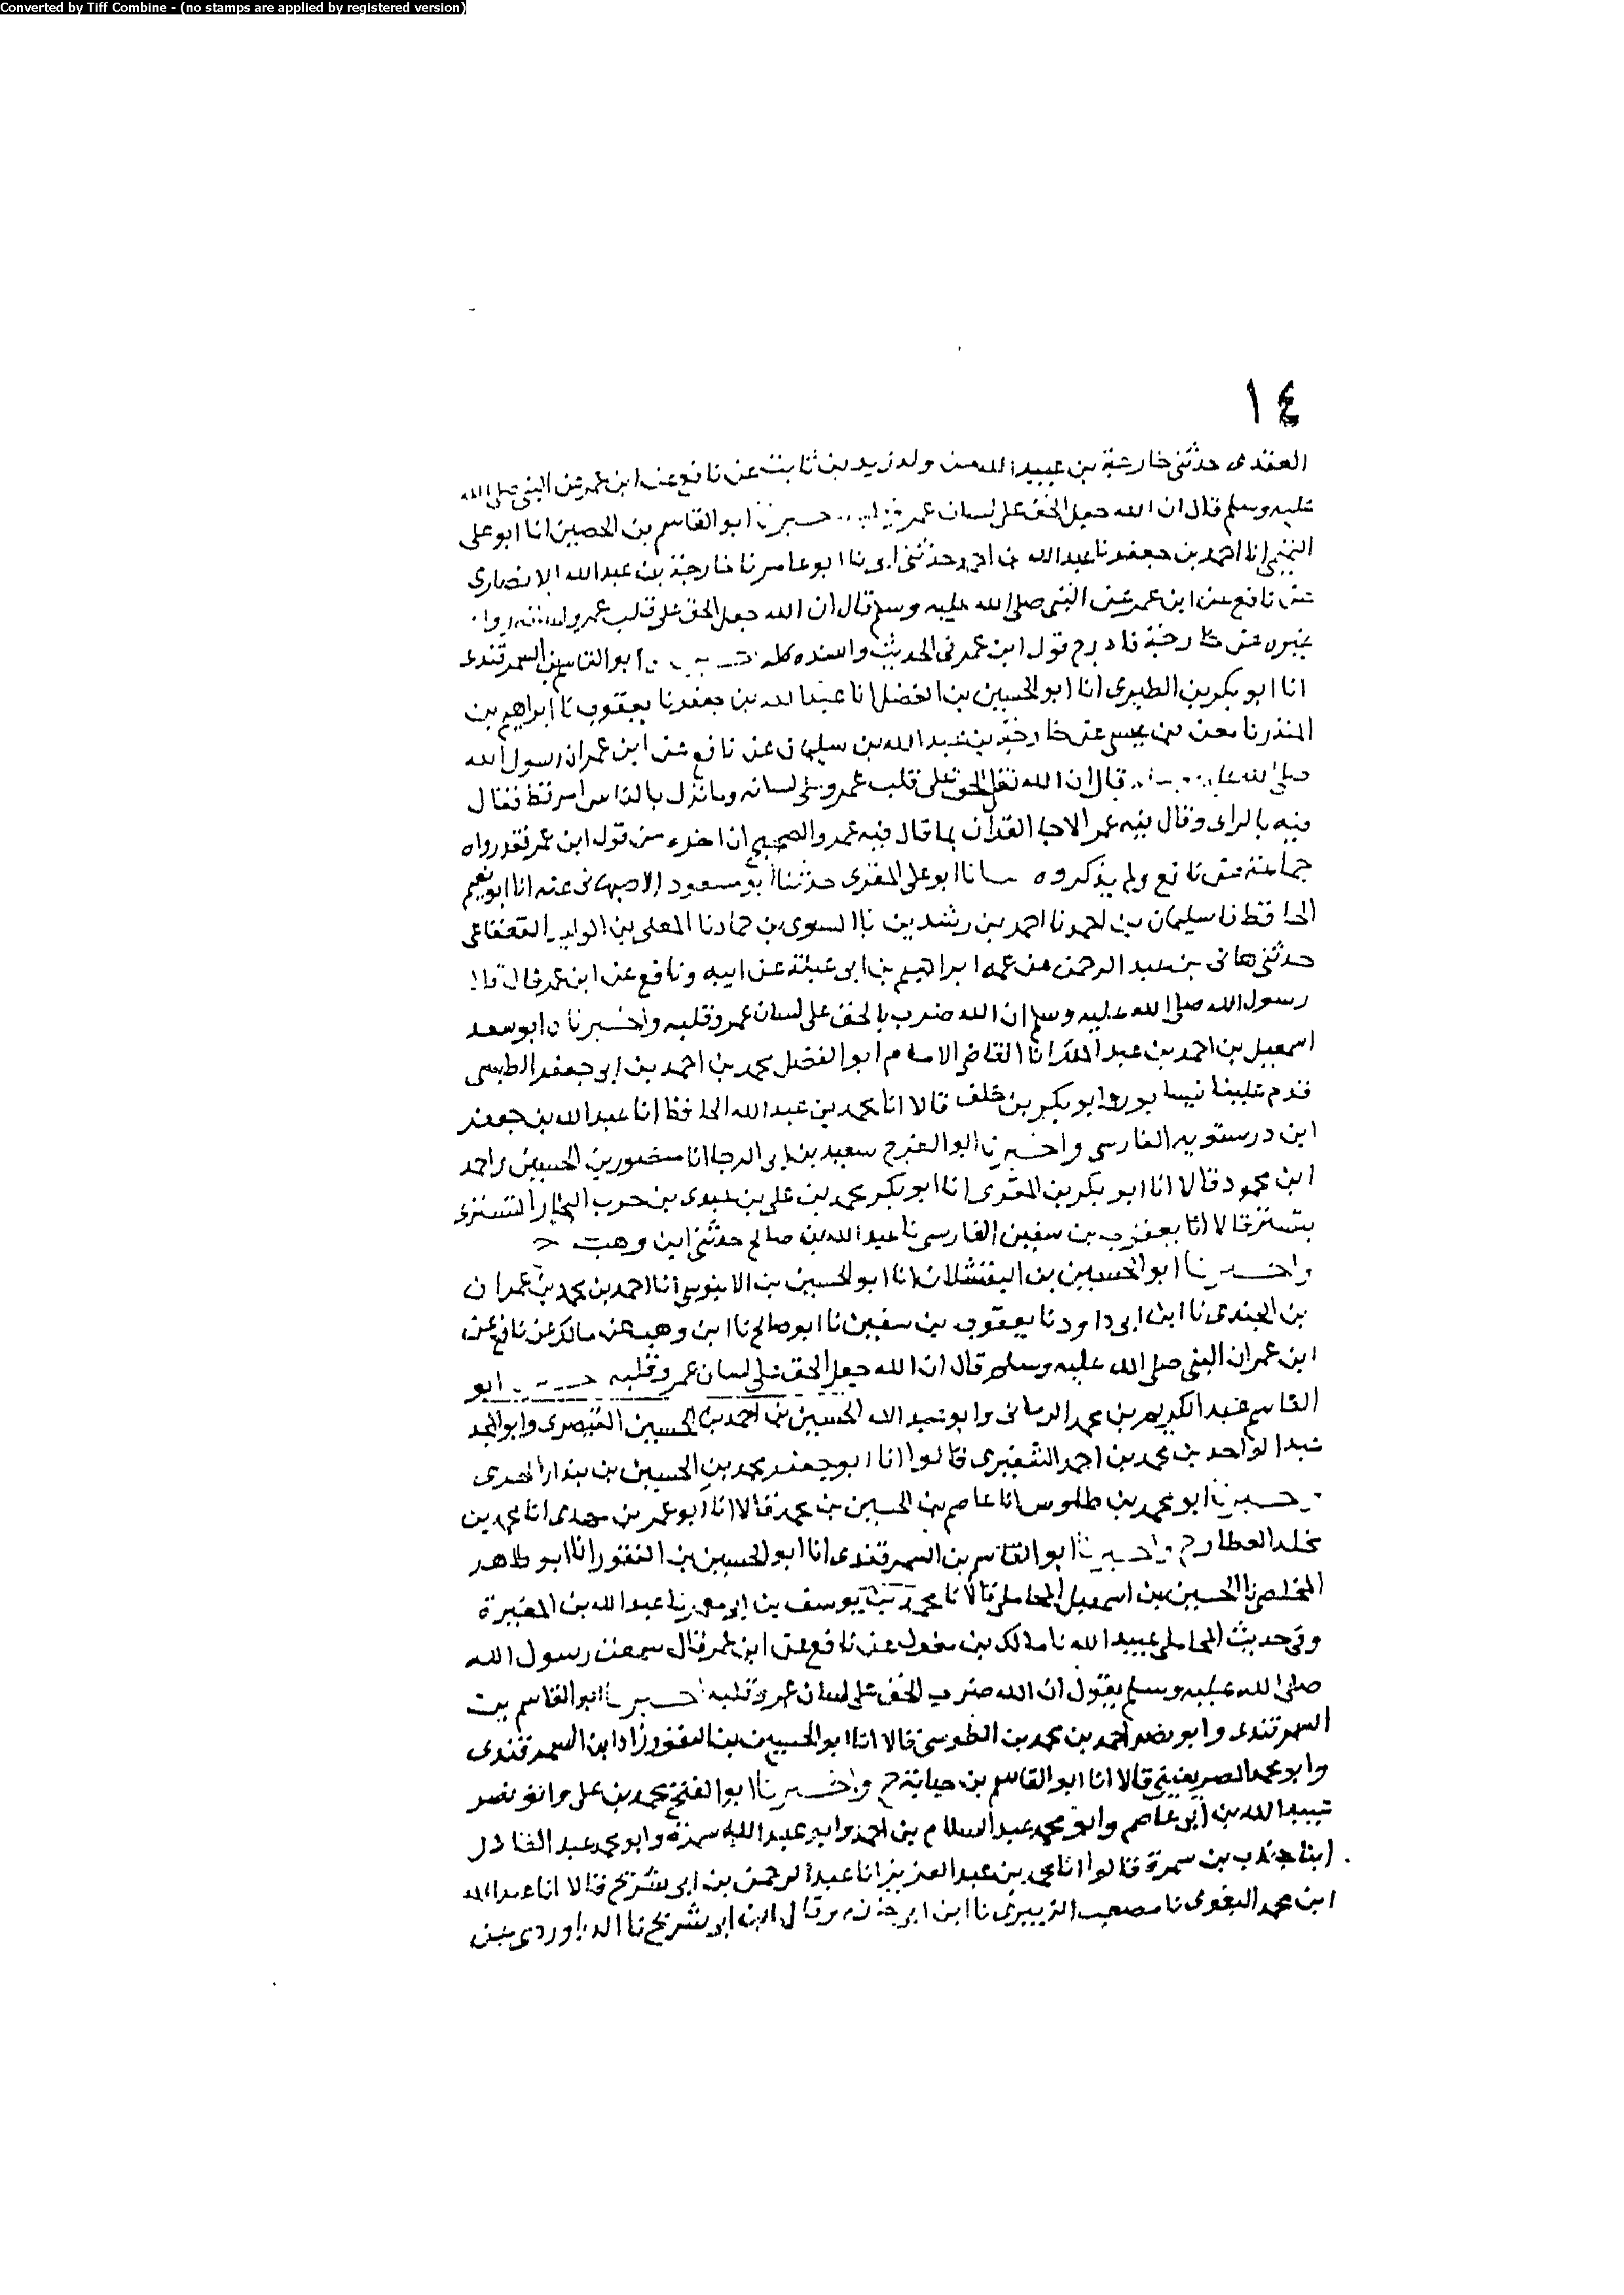 Converted by Tiff Combine - (no stamps are applied by registered version)
١٤
العقدى حدثنى خارجة بن عبيد الله من ولد زيد بن ثابت عن نافع عن ابن عمر عن النبى صلى الله
عليه وسلم قال ان الله جعل الحق على لسان عمر ابو القاسم بن الحصين انا ابو على
انا احمد بن جعفر نا عبد الله بن احمد حدثنى ابى نا ابو عامر نا خارجة بن عبد الله الانصارى
عن نافع عن ابن عمر عن النبى صلى الله عليه وسلم قال ان الله جعل الحق على قلب عمر
غيره عن خارجة فادرج قول ابن عمر فى الحديث واسنده كله ابو القاسم بن السمرقندى
انا ابو بكر بن الطبرى انا ابو الحسين بن الفضل انا عبد الله بن جعفر نا يعقوب نا ابراهيم بن
المنذر نا معن بن عيسى عن خارجة بن عبد الله بن سليمان عن نافع عن ابن عمر ان رسول الله
صلى الله قال ان الله الحق على قلب عمر وعلى لسانه وما نزل بالناس امر قط فقال
فيه بالراى وقال فيه عمر الا جا القرآن بما قال فيه عمر والصحيح ان اخره من قول ابن عمر فقد رواه
جماعة عن نافع ولم يذكروه انا ابو على المقرى حدثنا ابو مسعود الاصبهانى عنه انا ابو نعيم
الحافظ نا سليمان بن احمد نا احمد بن رشدين نا السرى بن حماد نا المعلى بن الوليد القعقاعى
حدثنى هانى بن عبد الرحمن عن عمه ابراهيم بن ابى عبلة عن ابيه ونافع عن ابن عمر قال قال
رسول الله صلى الله عليه وسلم ان الله ضرب بالحق على لسان عمر وقلبه واخبرنا ابو سعد
اسمعيل بن احمد بن عبد الملك انا القاضى الامام ابو الفضل محمد بن احمد بن ابى جعفر الطبسى
قدم علينا نيسابور وابو بكر بن خلف قالا انا محمد بن عبد الله الحافظ انا عبد الله بن جعفر
ابن درستويه الفارسى واخبرنا ابو الفرج سعيد بن ابى الرجا انا منصور بن الحسين واحمد
ابن محمود قالا انا ابو بكر بن المقرى انا ابو بكر محمد بن على بن بن حرب التسترى
بتستر قالا انا يعقوب بن سفين الفارسى نا عبد الله بن صالح حدثنى ابن وهب ح
واخبرنا ابو الحسين بن انا ابو الحسين بن الابنوسى انا احمد بن محمد بن عمران
بن الجندى نا ابن ابى داود نا يعقوب بن سفين نا ابو صالح نا ابن وهب عن مالك عن نافع عن
ابن عمر ان النبى صلى الله عليه وسلم قال ان الله جعل الحق على لسان عمر وقلبه ابو
القاسم عبد الكريم بن محمد وابو عبد الله الحسين بن احمد بن الحسين وابو المجد
عبد الواحد بن محمد بن احمد قالوا انا ابو جعفر محمد بن الحسين بن بندار
ابو محمد بن طاوس انا عاصم بن الحسين بن محمد قالا انا ابو عمر بن مهدى انا محمد بن
مخلد العطار ح واخبرنا ابو القاسم بن السمرقندى انا ابو الحسين بن النقور انا ابو طاهر
المخلص نا الحسين بن اسمعيل المحاملى قالا نا محمد بن يوسف بن ابى معمر نا عبد الله بن المغيرة
وفى حديث المحاملى عبيد الله نا مالك بن مغول عن نافع عن ابن عمر قال سمعت رسول الله
صلى الله عليه وسلم يقول ان الله ضرب الحق على لسان عمر وقلبه اخبرنا ابو القاسم بن
السمرقندى وابو نصر احمد بن محمد بن الطوسى قالا انا ابو الحسين بن النقور زاد ابن السمرقندى
وابو محمد الصريفينى قالا انا ابو القاسم بن حبابة ح واخبرنا ابو الفتح محمد بن على وابو نصر
عبيد الله بن ابى عاصم وابو محمد عبد السلام بن احمد وابو عبد الله سمرة وابو محمد عبد القادر
ابنا جندب بن سمرة قالوا انا محمد بن عبد العزيز انا عبد الرحمن بن ابى شريح قالا انا عبد الله
ابن محمد البغوى نا مصعب الزبيرى نا ابن ابى وقال ابن ابى شريح نا الدراوردى عن